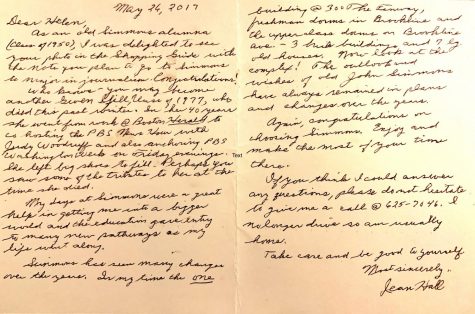 May 24, 2017
Dear Helen,
As an old Simmons alumna
(Class of 1950), I was delighted to see
your photo in the Shopping Guide with
the note you plan to go to Simmons
to major in journalism. Congratulations!
Who knows - you may become
another Gwen Ifill, Class of 1977, who
died this past winter. In her 40 years
she went from work @ Boston Herald to
co hosting the PBS News Hour with
Judy Woodruff and also anchoring PBS
Washington Week on Friday evenings.
She left big shoes to fill. Perhaps you
saw some of the tributes to her at the
time she died.
My days at Simmons were a great
help in getting me into a bigger
world and the education gave entry
to many new pathways as my
life went along.
Simmons has seen many changes
over the years. In my time the one
Text
building @ 300 The Fenway,
freshman dorms in Brookline and
the upper class dorms on Brookline
Ave - 3 brick buildings and 7 by
old houses. Now look at the
complex! The outlook and
wishes of old John Simmons
have always remained in plans
and changes over the years.
Again, congratulations on
choosing Simmons. Enjoy and
make the most of your time
there.
If you think I could answer
any questions, please do not hesitate
to give me a call @ 625-7046. I
no longer drive so am usually
home.
Take care and be good to yourself
Most sincerely,
Jean Hall